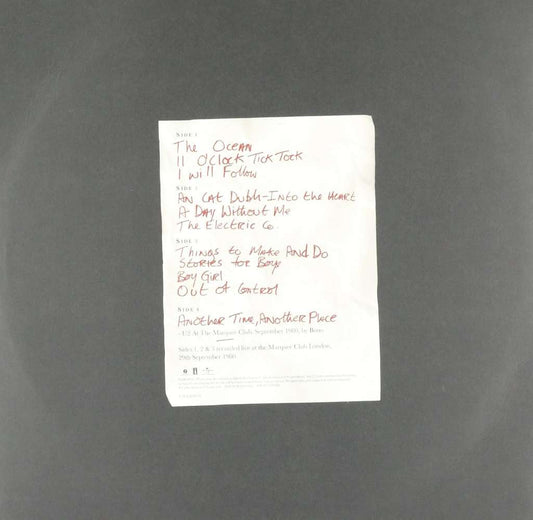 SIDE 1
The OCEAN
11 O'Clock Tick Tock
I Will Follow
SIDE 2
AN CAT DUBH-INTO the HEART
A DAY WITHOUT ME
THE ELECTRIC Co.
SIDE 3
THINGS to MAKE AND DO
STORIES for Boys
Boy Girl
OUT Of Control
SIDE 4
ANOTHER TIME, ANOTHER PLACE
At The Marquee Club, September 1980, by Bono
Sides 1, 2 & 3 recorded live at the Marquee Club London,
29th September 1980